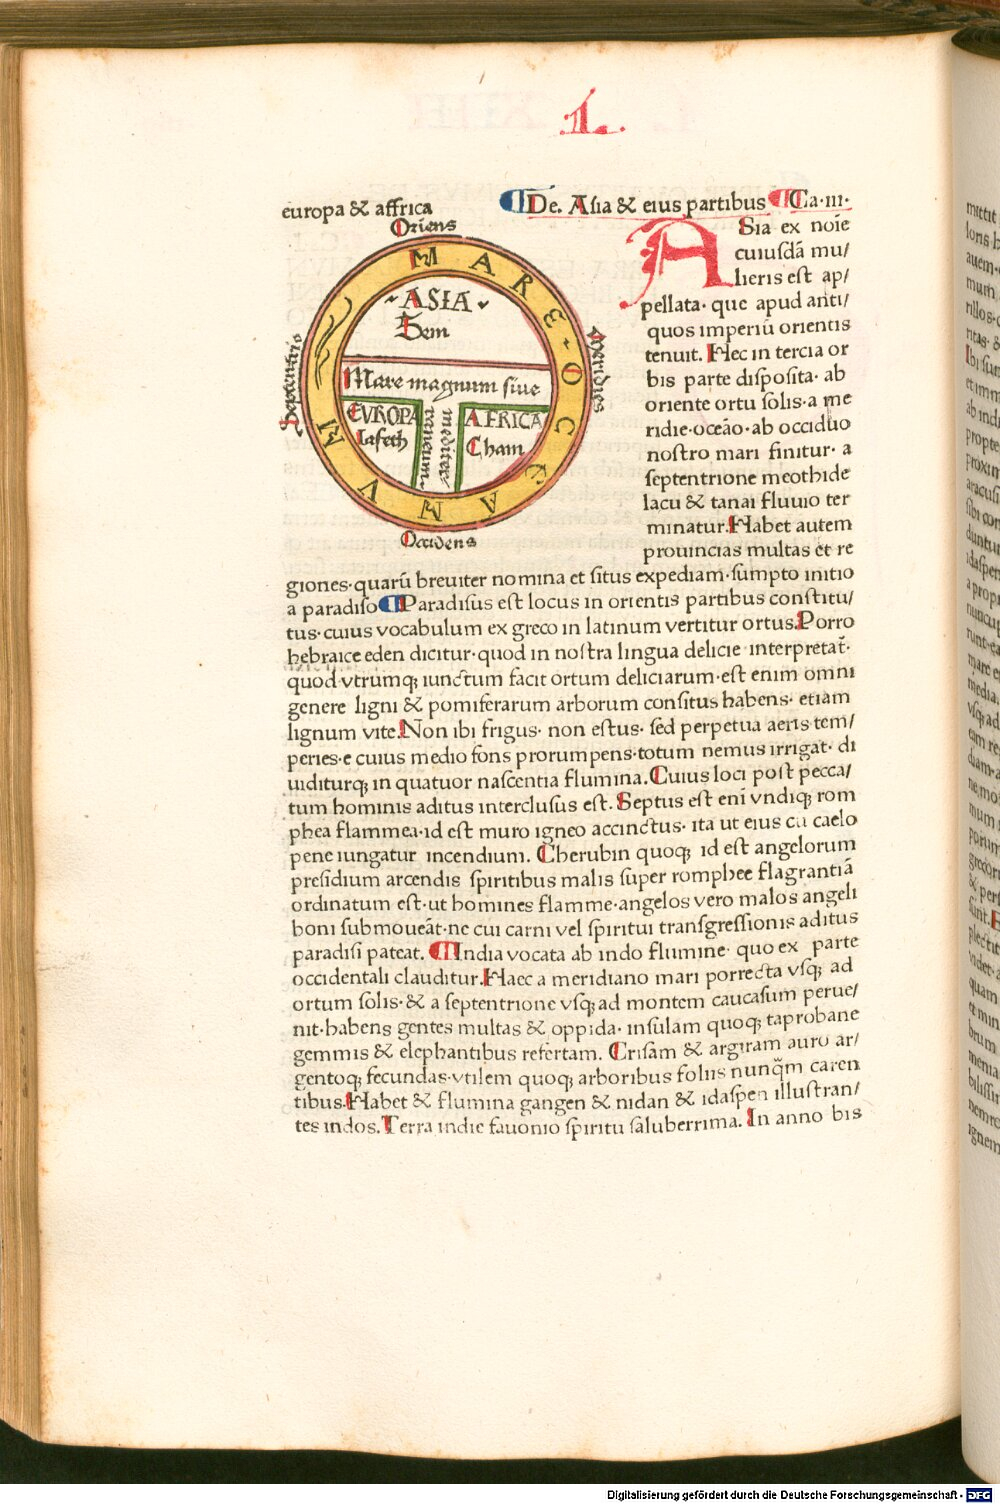 1.
europa & affrica
¶De. Asia & eius partibus ¶Ca·iii·
Oriens
MARE·OCEAMVM
Septentrio
Meridies
ASIA
Sem
Mare magnum siue
mediterraneum
EVROPA
Iafeth
AFRICA
Cham
Occidens
ASia ex noīe
cuiusdā mu/
lieris est ap/
pellata· que apud anti/
quos imperiū orientis
tenuit. Hec in tercia or
bis parte disposita· ab
oriente ortu solis·a me
ridie·oceāo·ab occiduo
nostro mari finitur· a
septentrione meothide
lacu & tanai fluuio ter
minatur.Habet autem
prouincias multas et re
giones·quarū breuiter nomina et situs expediam·sumpto initio
a paradiso ¶Paradisus est locus in orientis partibus constitu/
tus·cuius vocabulum ex greco in latinum vertitur ortus.Porro
hebraice eden dicitur·quod in nostra lingua delicie interpretat̄·
quod vtrumqꝫ iunctum facit ortum deliciarum·est enim omni
genere ligni & pomiferarum arborum consitus habens· etiam
lignum vite.Non ibi frigus· non estus· sed perpetua aeris tem/
peries·e cuius medio fons prorumpens·totum nemus irrigat· di
uiditurqꝫ in quatuor nascentia flumina.Cuius loci post pecca/
tum hominis aditus interclusus est. Septus est enī vndiqꝫ rom
phea flammea·id est muro igneo accinctus· ita ut eius cū caelo
pene iungatur incendium. Cherubin quoqꝫ id est angelorum
presidium arcendis spiritibus malis super romphee flagrantiā
ordinatum est·ut homines flamme·angelos vero malos angeli
boni submoueāt·ne cui carni vel spiritui transgressionis aditus
paradisi pateat. ¶India vocata ab indo flumine· quo ex parte
occidentali clauditur.Haec a meridiano mari porrecta vsqꝫ ad
ortum solis·& a septentrione vsqꝫ ad montem caucasum perue/
nit·habens gentes multas & oppida· insulam quoqꝫ taprobane
gemmis & elephantibus refertam. Crisam & argiram auro ar/
gentoqꝫ fecundas·vtilem quoqꝫ arboribus foliis nunq̄m caren
tibus.Habet & flumina gangen & nidan & idaspen illustran/
tes indos.Terra indie fauonio spiritu saluberrima. In anno bis
Digitalisierung gefördert durch die Deutsche Forschungsgemeinschaft - DFG